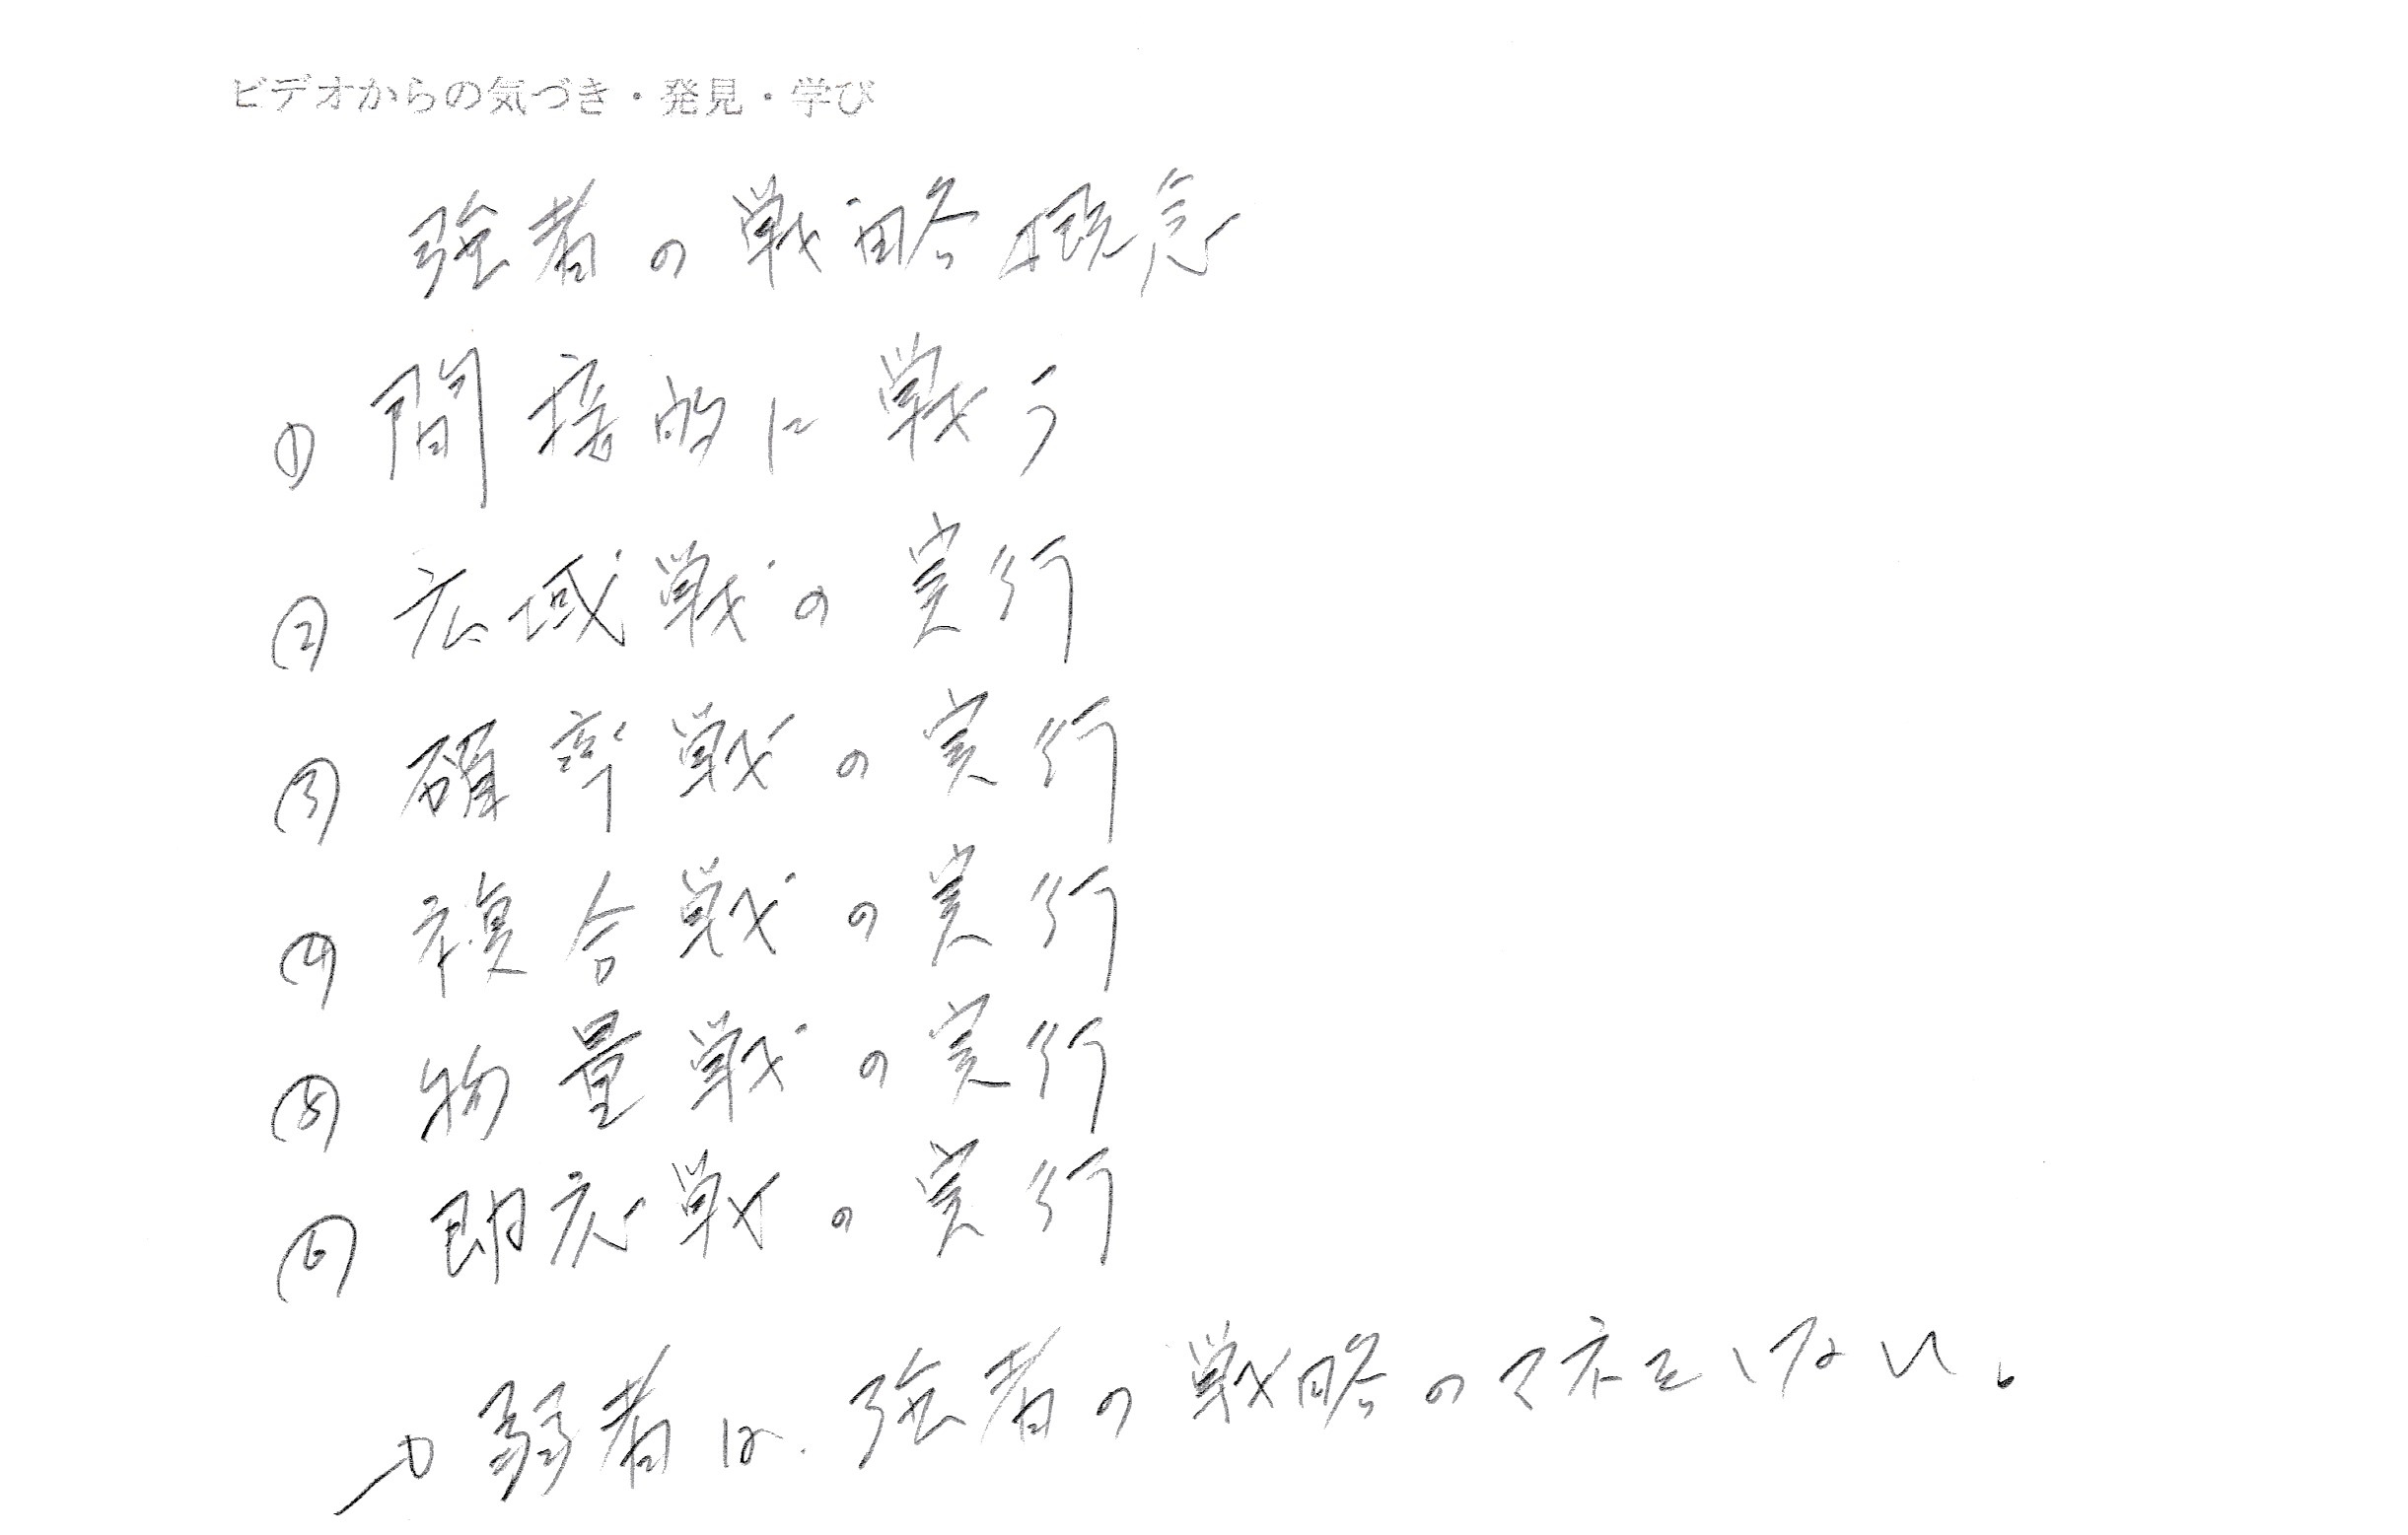 ビデオからの気づき・発見・学び
強者の戦略概念
① 間接的に戦う
② 広域戦の実行
③ 確率戦の実行
④ 複合戦の実行
⑤ 物量戦の実行
⑥ 即応戦の実行
→ 弱者は、強者の戦略のマネをしない。